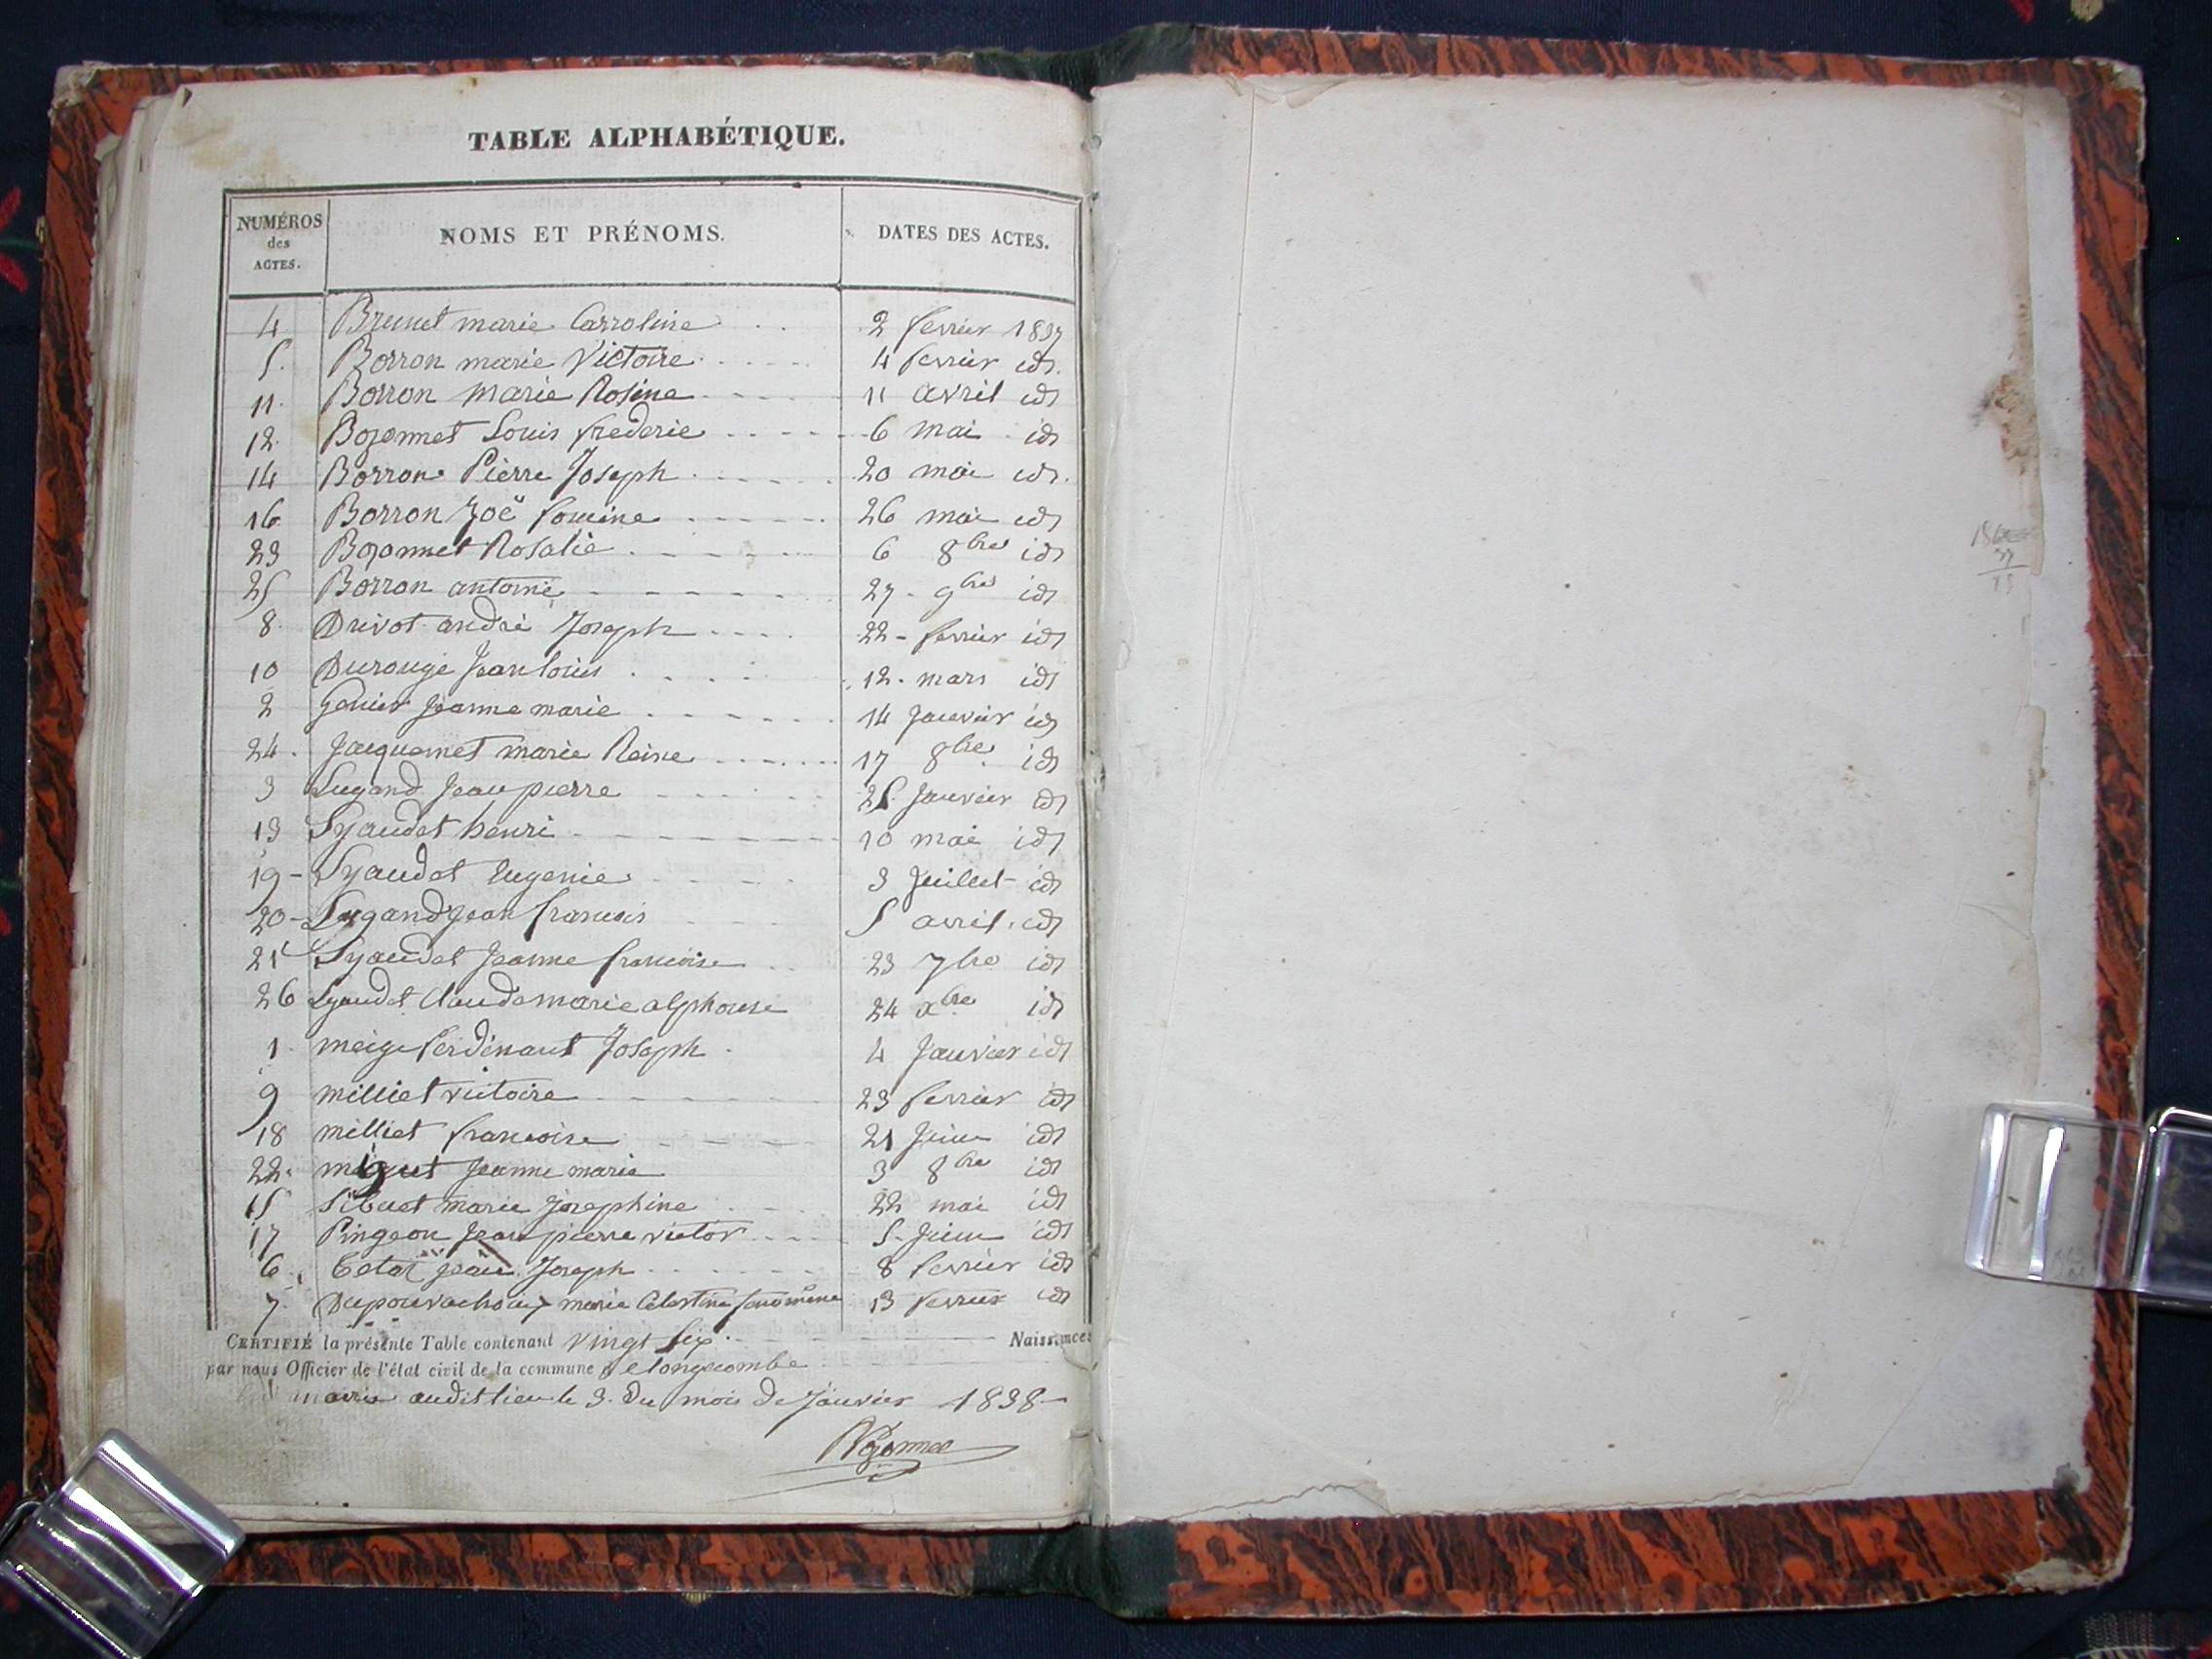 TABLE ALPHABÉTIQUE.
NUMÉROS des ACTES. NOMS ET PRÉNOMS. DATES DES ACTES.
4 Brunet marie Carroline 2 fevrier 1837
5. Borron marie Victoire 4 fevrier id.
11. Borron Marie Rosine 11 avril id
12. Bozonnet Louis frederic 6 mai id
14 Borron Pierre Joseph 20 mai id.
16. Borron Zoë 26 mai id
23 Bozonnet Rosalie 6 8bre id
25 Borron antoine 27 9bre id
8. Drivot andré Joseph 22 fevrier id
10 Durouge Jean louis 12. mars id
2 Genier Jeanne marie 14 Janvier id
24. Jacquemet marie Reine 17 8bre id
3 Lugand Jean pierre 25 Janvier id
13 Lyaudet henri 10 mai id
19 - Lyaudet Eugenie 3 Juillet id
20 - Lugand Jean francois 5 avril. id
21 Lyaudet Jeanne francoise 23 7bre id
26 Lyaudet Claude marie alphonse 24 xbre id
1. meige ferdinant Joseph 4 Janvier id
9 milliet victoire 23 fevrier id
18 milliet francoise 21 Juin id
22. miguet Jeanne marie 3 8bre id
15 Sibuet marie Josephine 22 mai id
17 Pingeon Jean pierre victor 5. Juin id
6. Jean Joseph 8 fevrier id
7. marie Celestine 13 fevrier id
CERTIFIÉ la présente Table contenant vingt six Naissances
par nous Officier de l'état civil de la commune de longecombe
mairie audit lieu le 3. du mois de Janvier 1838
Bozonnet